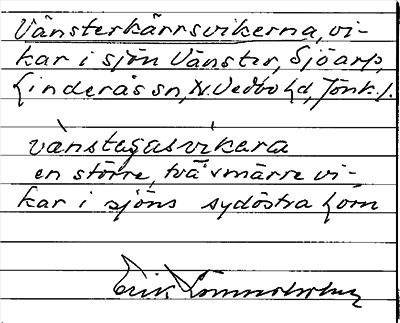 Vänsterkärrsvikerna, vi-
kar i sjön Vänster, Sjöarp,
Linderås sn, N. Vedbo hd, Jönk. l.
vànstegasvíkara
en större, två smärre vi-
kar i sjöns sydöstra hörn
Erik